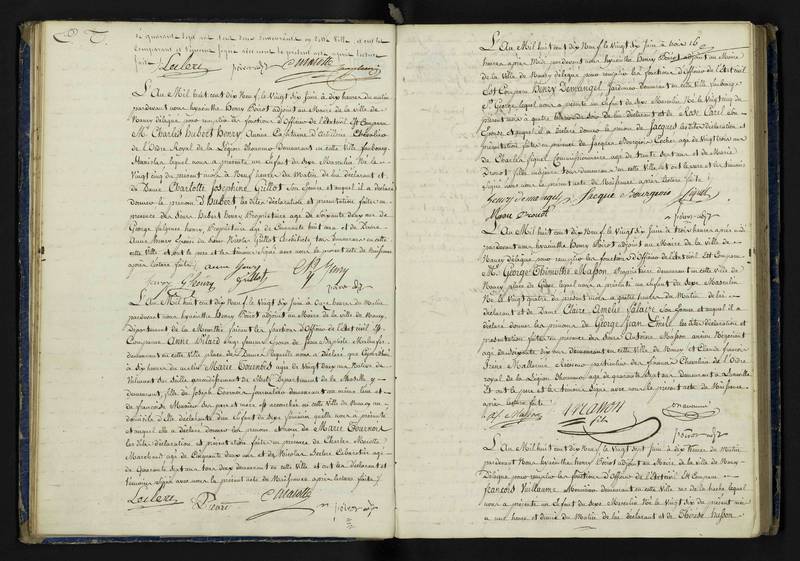 de quarante sept ans tous deux domiciliés en cette Ville, et ont les
comparant et témoins signé avec nous le présent acte après lecture
faite
Leclerc
Marotte
L'An Mil huit cent dix Neuf, le Vingt Six Juin à dix heures du matin
pardevant nous hyacinthe Henry Poirot adjoint au Maire de la ville de
Nancy délégué pour remplir les fonctions d'Officier de l'état Civil Est Comparu
Mr Charles hubert Henry Ancien Capitaine d'artillerie Chevalier
de l'Ordre Royal de la Légion d'honneur Demeurant en cette Ville faubourg
Stanislas lequel nous a présenté un Enfant du Sexe Masculin Né le
Vingt cinq du présent mois à Neuf heures du Matin de lui déclarant et
de Dame Charlotte Josephine Grillot Son Epouse et auquel il a déclaré
donner le prénom d'Hubert les dites déclaration et présentation faites en
présence des Sieurs hubert Henry Propriétaire âgé de Soixante deux ans de
George henry, Propriétaire âgé de Cinquante huit ans et de Dame
Anne Henry Epouse du Sieur Nicolas Grillot Architecte, tous demeurans en cette
cette Ville et ont le père et les témoins Signé avec nous le présent acte de Naissance
après lecture faite
anne Henry
Grillot
henry
G henry
Ch. Henry
L'An Mil huit cent dix Neuf le Vingt Six Juin à Onze heures du Matin
pardevant nous hyacinthe Henry Poirot adjoint au Maire de la ville de Nancy
Département de la Meurthe faisant les fonctions d'Officier de l'état Civil Est
Comparue Anne Silard Sage femme Epouse de Jean Baptiste
demeurant en cette Ville place de laquelle nous a déclaré que
dix heures du matin Marie Tournois âgée de Vingt deux ans Native de
arrondissement de Metz Département de la Moselle y
demeurant, fille de Joseph Tournois journalier demeurant au même lieu et
de françoise ses père et mère est accouchée en cette Ville de Nancy au
domicile d'Elle déclarante d'un Enfant du Sexe féminin qu'elle nous a présenté
et auquel Elle a déclaré donner les prénom et nom de Marie Tournois
les dites déclaration, et présentation faites en présence de Charles Marotte
Marchand âgé de Cinquante deux ans et de Nicolas Leclerc Cabaretier âgé
de Quarante Sept ans tous deux demeurans en cette Ville et ont les déclarant et
témoins Signé avec nous le présent acte de Naissance après lecture faite
Leclerc
Marotte
L'An Mil huit cent dix Neuf, le Vingt Six Juin à trois
heures après Midi pardevant nous hyacinthe Henry Poirot adjoint au Maire
de la Ville de Nancy délégué pour remplir les fonctions d'Officier de l'état Civil
Est Comparu Henry Demangel Jardinier demeurant en cette Ville faubourg
St George lequel nous a présenté un Enfant du Sexe Masculin Né le Vingt cinq du
présent mois à quatre heures du Soir de lui déclarant et de Rose Carel Son
Epouse et auquel il a déclaré donner le prénom de Jacques les dites déclaration et
présentation faites en présence de Jacques Bourgeois Cocher âgé de Vingt trois ans
de Charles Siguel Commissionnaire âgé de trente Sept ans et de Marie
Drouot fille majeure tous demeurans en cette Ville et ont le père et les témoins
Signé avec nous le présent acte de Naissance après lecture faite
henry Demangel
Jacque Bourgeois
Siguel
Marie Drouot
L'An Mil huit cent dix Neuf le Vingt Six Juin à trois heures après midi
pardevant nous hyacinthe Henry Poirot adjoint au Maire de la Ville de
Nancy délégué pour remplir les fonctions d'Officier de l'état Civil Est Comparu
Mr George Thimothé Masson Propriétaire demeurant en cette Ville de
Nancy, place de Grève lequel nous a présenté un Enfant du Sexe Masculin
Né le Vingt quatre du présent mois à quatre heures du Matin de lui
déclarant et de Dame Claire Amélie Salaire Son Epouse et auquel il a
déclaré donner les prénoms de George Jean Emile les dites déclaration et
présentation faites en présence des Sieurs Antoine Masson ancien Négociant
âgé de Soixante dix ans demeurant en cette Ville de Nancy et Claude francois
Chevalier de l'Ordre
royal de la Légion d'honneur âgé de quarante Sept ans demeurant à Lunéville
Et ont le père et les témoins Signé avec nous le présent acte de Naissance
après lecture faite
G.T. Masson
Masson
fils
L'An Mil huit cent dix Neuf le Vingt Sept Juin à dix heures du Matin
pardevant Nous hyacinthe Henry Poirot adjoint au Maire de la Ville de Nancy
Délégué pour remplir les fonctions d'Officier de l'état Civil Est Comparu
francois Vuillaume Menuisier demeurant en cette Ville rue de la hache lequel
nous a présenté un Enfant du Sexe Masculin Né le Vingt Six du présent mois
à une heure et demie du Matin de lui déclarant et de Thérèse Masson